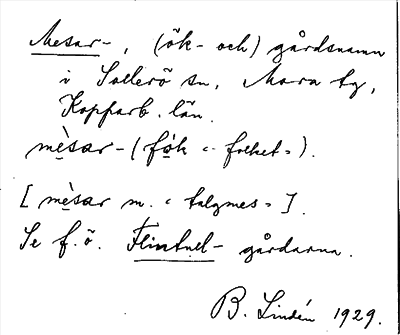 Mesar-, (ök- och) gårdsnamn
i Sollerö sn, Mora tg,
Kopparb. län.
mèsar- (fok « folket »).
[ mèsar m. « talgmes » ].
Se f. ö. gårdarna.
B. Lindén 1929.